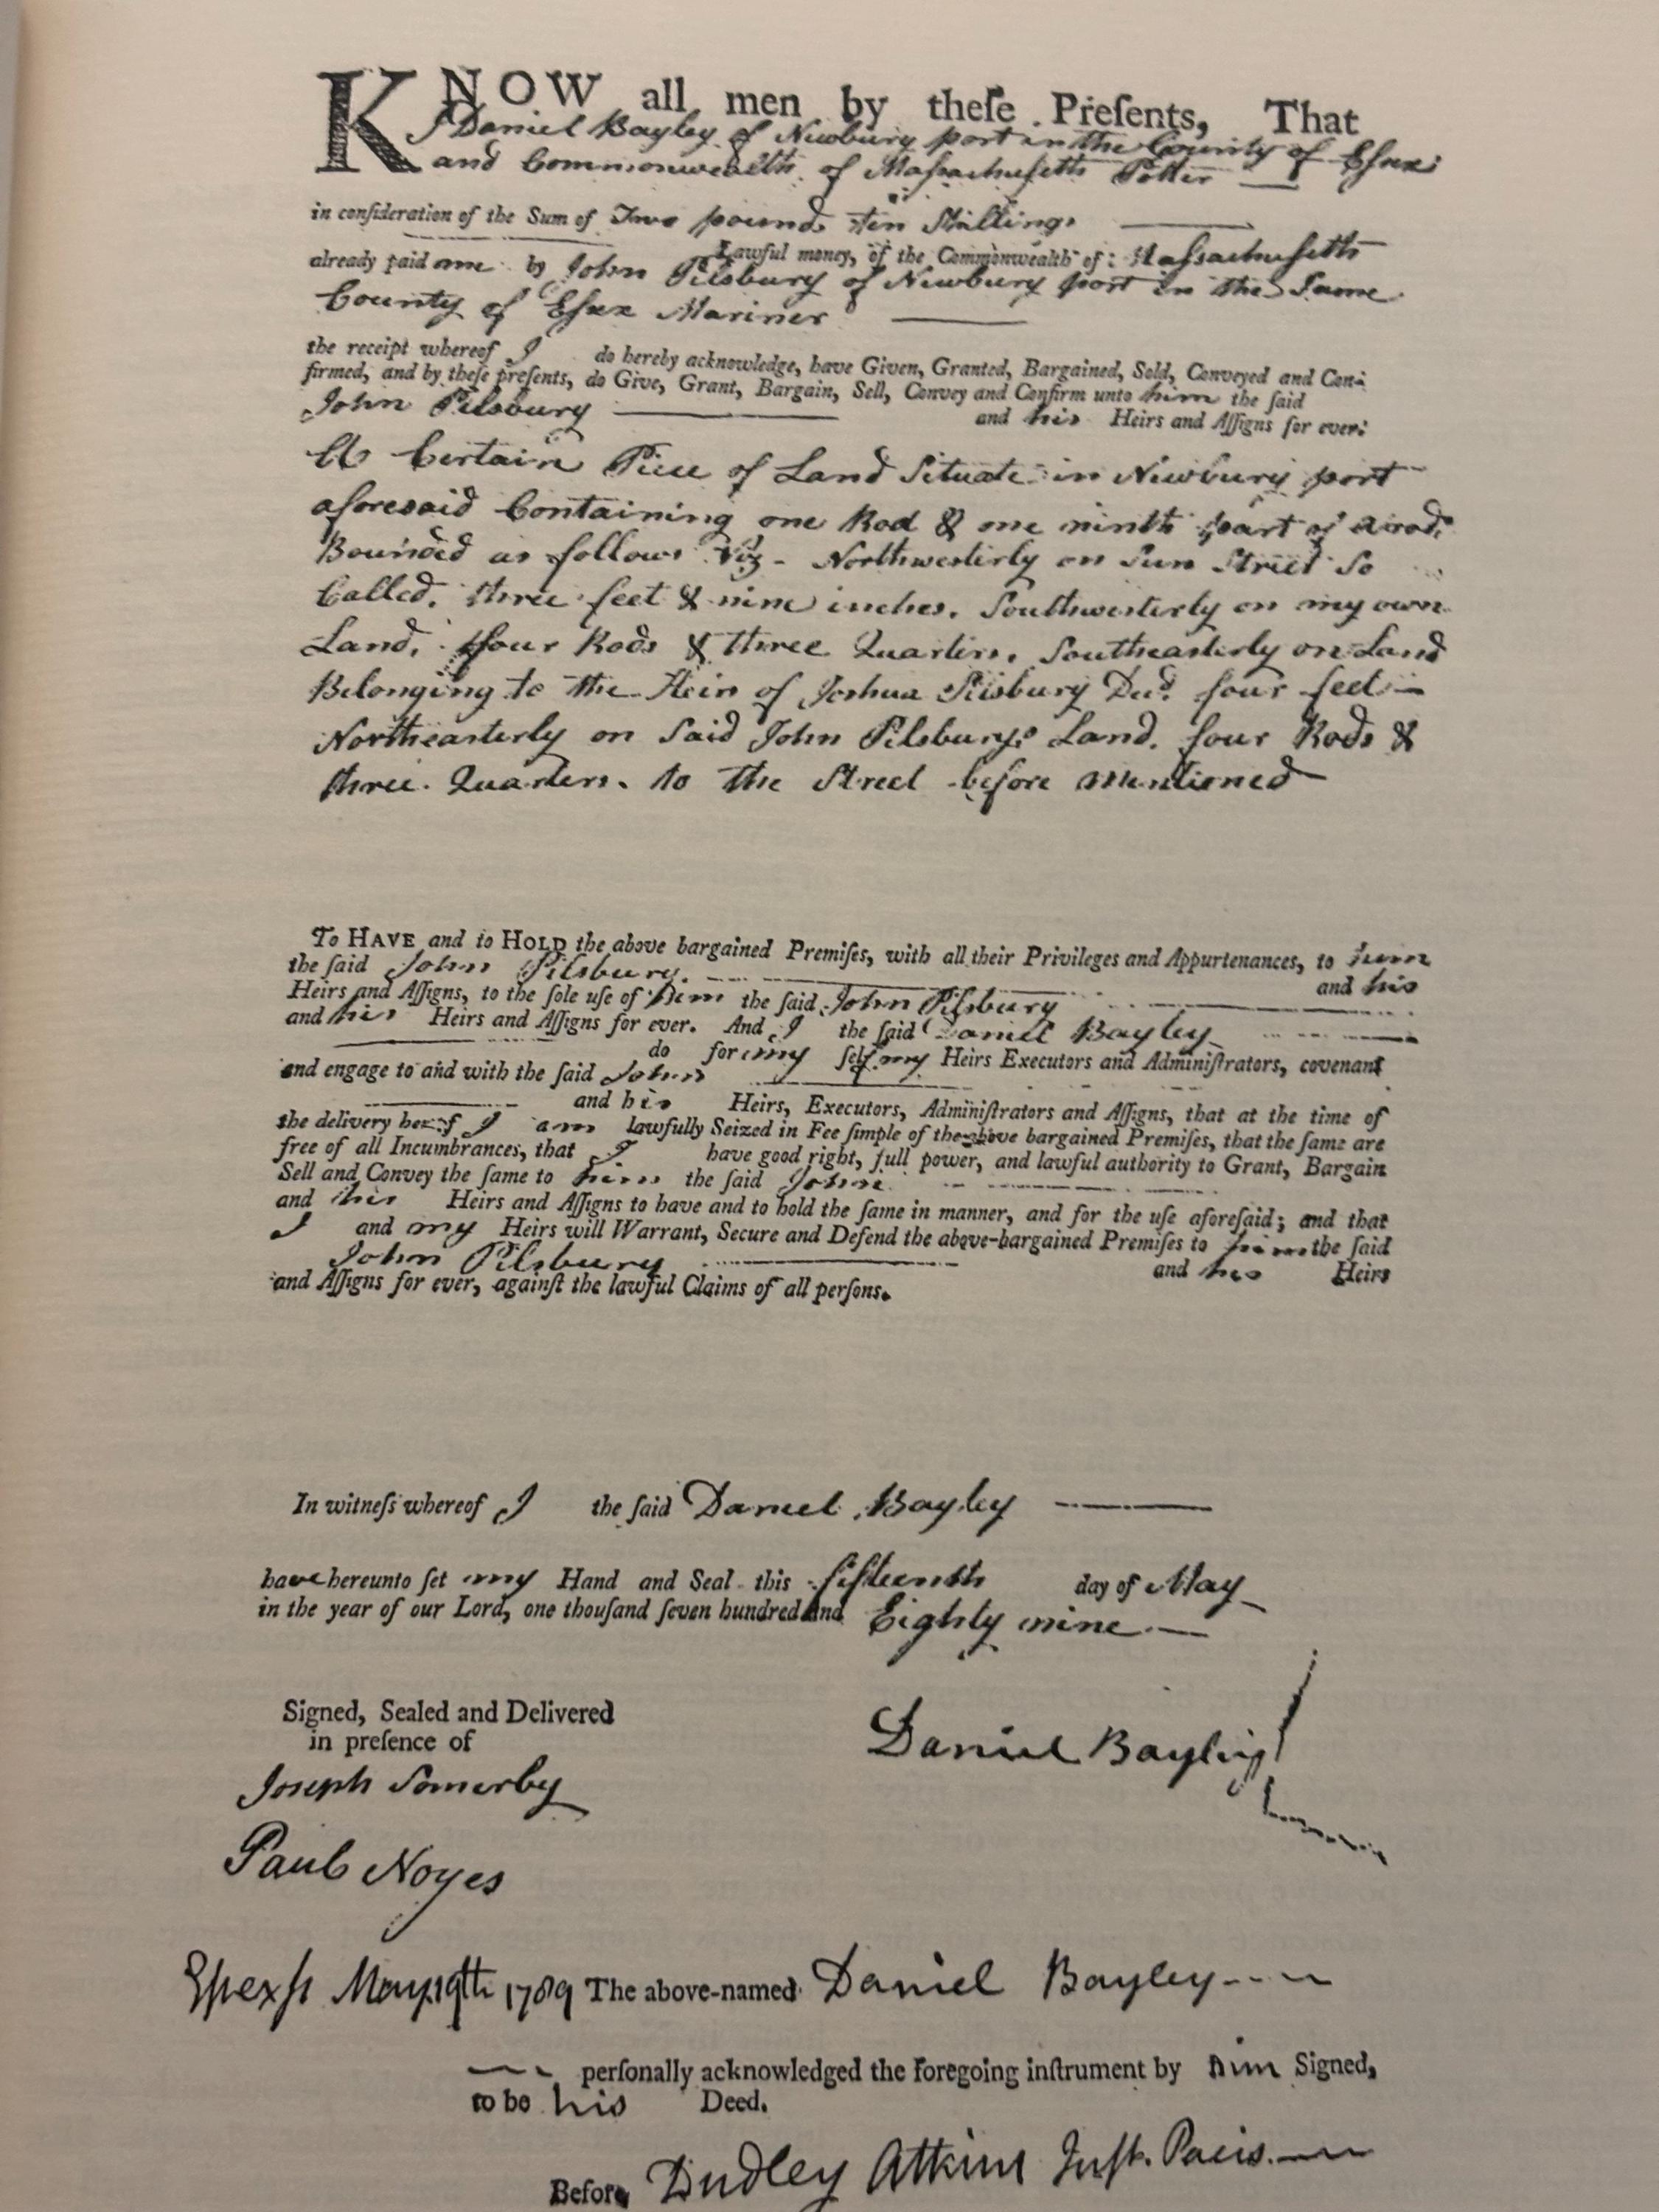 KNOW all men by theſe Preſents, That
I Daniel Bayley of Newbury port in the County of Eſsex
and Commonwealth of Maſsachuſetts Potter
in conſideration of the Sum of Two pounds ten Shillings
Lawful money, of the Commonwealth of Maſsachuſetts
already paid me by John Pilsbury of Newbury port in the Same
County of Eſsex Mariner
the receipt whereof I do hereby acknowledge, have Given, Granted, Bargained, Sold, Conveyed and Con-
firmed, and by theſe preſents, do Give, Grant, Bargain, Sell, Convey and Confirm unto him the ſaid
John Pilsbury and his Heirs and Aſſigns for ever:
A Certain Piece of Land Situate in Newbury port
aforesaid Containing one Rod & one ninth part of a rod,
Bounded as follows Viz - Northwesterly on Sun Street So
Called, three feet & nine inches. Southwesterly on my own
Land, four Rods & three Quarters, Southeasterly on Land
Belonging to the Heirs of Joshua Pilsbury Decd. four feet -
Northeasterly on Said John Pilsburys Land, four Rods &
three Quarters. to the Street before mentioned
To HAVE and to HOLD the above bargained Premiſes, with all their Privileges and Appurtenances, to him
the ſaid John Pilsbury. and his
Heirs and Aſſigns, to the ſole uſe of him the ſaid John Pilsbury
and his Heirs and Aſſigns for ever. And I the ſaid Daniel Bayley
do for my ſelf my Heirs Executors and Adminiſtrators, covenant
and engage to and with the ſaid John
and his Heirs, Executors, Adminiſtrators and Aſſigns, that at the time of
the delivery hereof I am lawfully Seized in Fee ſimple of the above bargained Premiſes, that the ſame are
free of all Incumbrances, that I have good right, full power, and lawful authority to Grant, Bargain
Sell and Convey the same to him the ſaid John
and his Heirs and Aſſigns to have and to hold the ſame in manner, and for the uſe aforeſaid; and that
I and my Heirs will Warrant, Secure and Defend the above-bargained Premiſes to him the ſaid
John Pilsbury and his Heirs
and Aſſigns for ever, againſt the lawful Claims of all perſons.
In witneſs whereof I the ſaid Daniel Bayley
have hereunto ſet my Hand and Seal this fifteenth day of May
in the year of our Lord, one thouſand ſeven hundred and Eighty nine
Signed, Sealed and Delivered
in preſence of
Daniel Bayley
Joseph Somerby
Paul Noyes
Eſsex ſs May 19th 1789 The above-named Daniel Bayley
perſonally acknowledged the foregoing inſtrument by him Signed,
to be his Deed.
Before Dudley Atkins Juſt. Pacis.